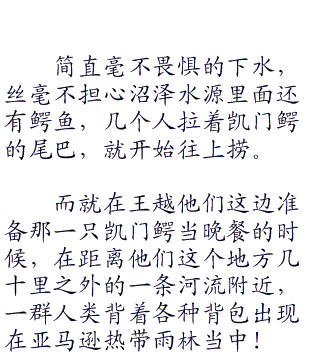 简直毫不畏惧的下水，
丝毫不担心沼泽水源里面还
有鳄鱼，几个人拉着凯门鳄
的尾巴，就开始往上捞。
而就在王越他们这边准
备那一只凯门鳄当晚餐的时
候，在距离他们这个地方几
十里之外的一条河流附近，
一群人类背着各种背包出现
在亚马逊热带雨林当中！